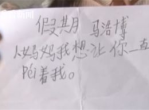 假期 马浩博
妈妈我想让你一直
陪着我。